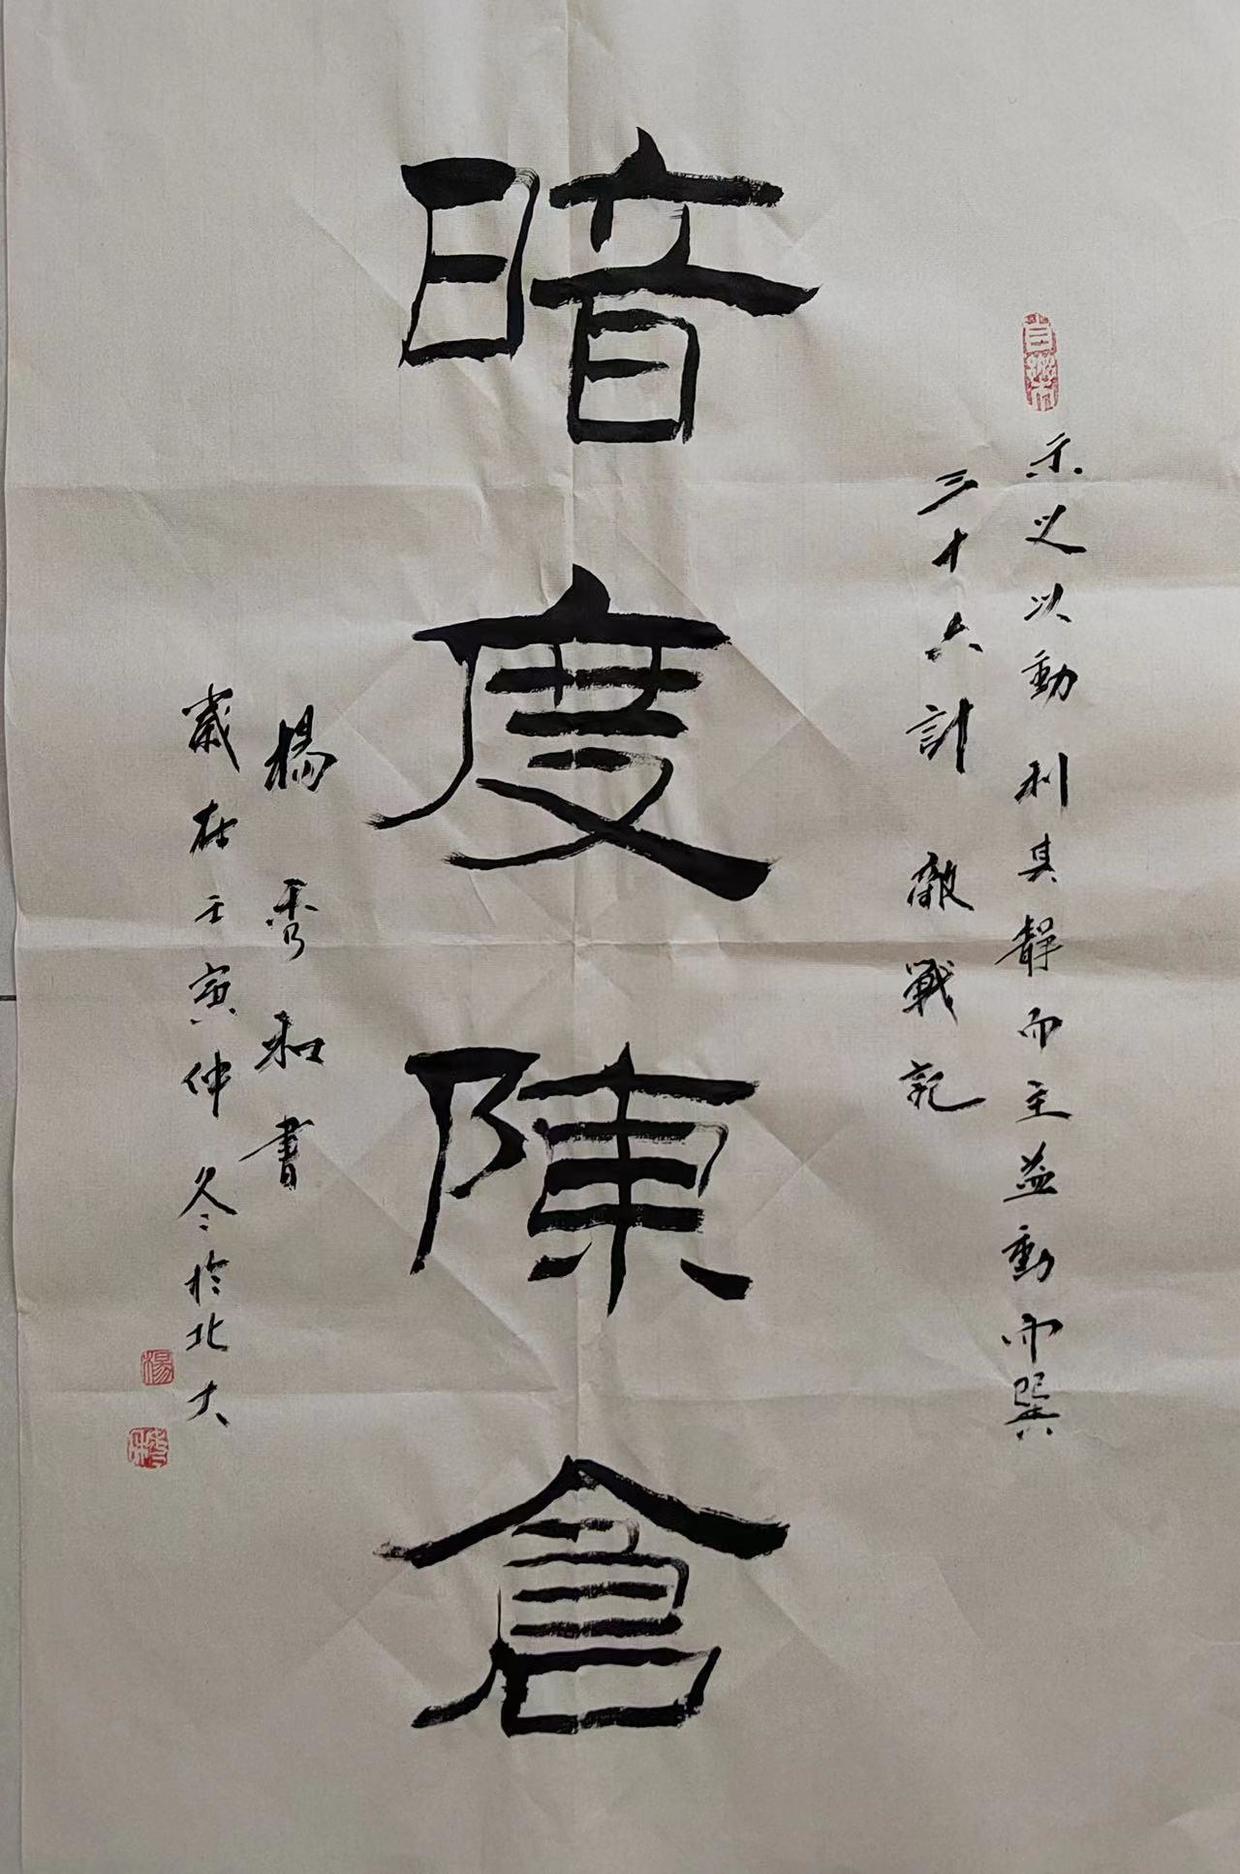 示义以動利其靜而主益動而巽
三十六計 敵戰記
暗度陳倉
楊秀和書
歲在壬寅仲冬於北大
楊
秀和